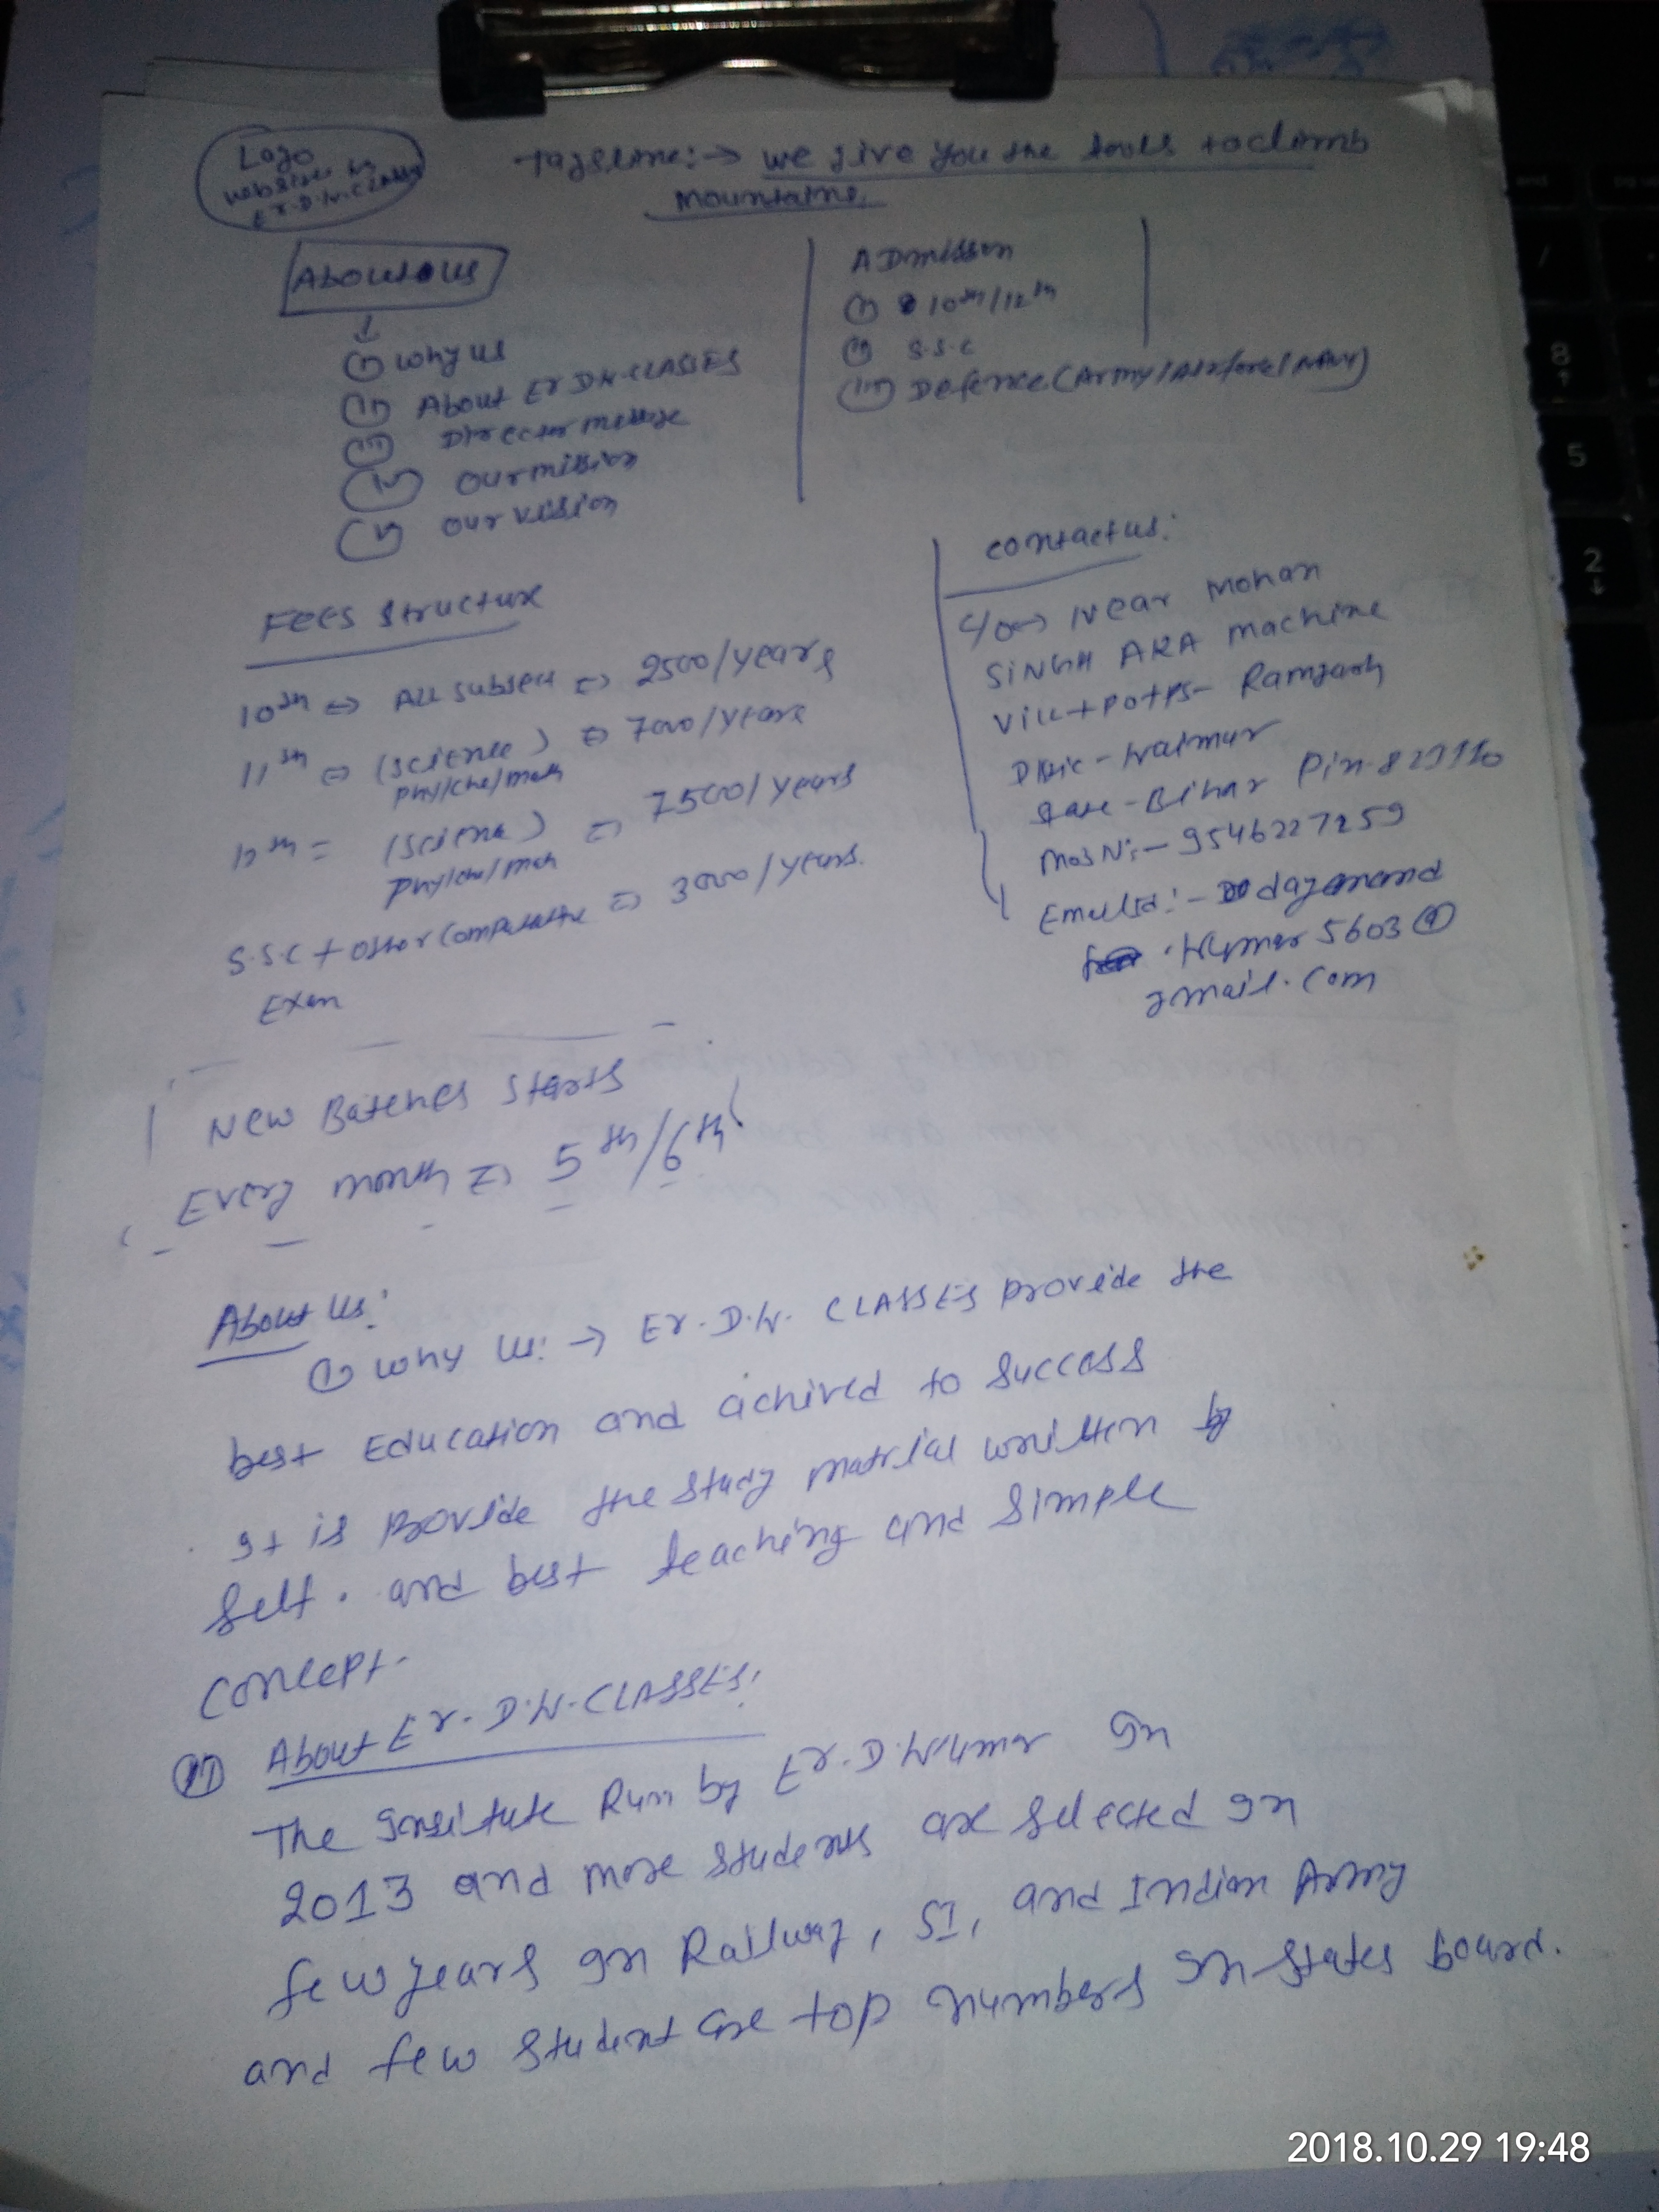 Logo
website by
Er.D.K.CLASSES
Tagsline:→ we give you the tools to climb
mountains.
About us
↓
(I) why us
(II) About Er DK CLASSES
(III) Director message
(IV) our mission
(V) our vision
ADmission
(I) 10th/12th
(II) S.S.C
(III) Defence (Army/Airforce/NAVY)
FEES Structure
10th ⇒ ALL subject ⇒ 2500/years
11th ⇒ (science) ⇒ 7000/years
phy/che/math
12th = (science) ⇒ 7500/years
phy/che/math
S.S.C + other Competitive ⇒ 3000/years.
Exam
contact us:
C/o → Near Mohan
SINGH ARA machine
Vill+po+ps- Ramgarh
Dist - Kaimur
State - Bihar Pin-821110
Mob N:- 9546227259
Email Id:- dayanand
.kumar5603@
gmail.com
New Batches starts
Every month ⇒ 5th/6th
About us:
(I) why us: → Er. D.K. CLASSES provide the
best Education and achived to success
It is provide the study matrial written by
self. and best teaching and simple
concept.
(II) About Er. D.K. CLASSES:
The Insitute Run by Er. D. Kumar In
2013 and more students are selected In
few years In Railway, SI, and Indian Army
and few student are top numbers In states board.
2018.10.29 19:48